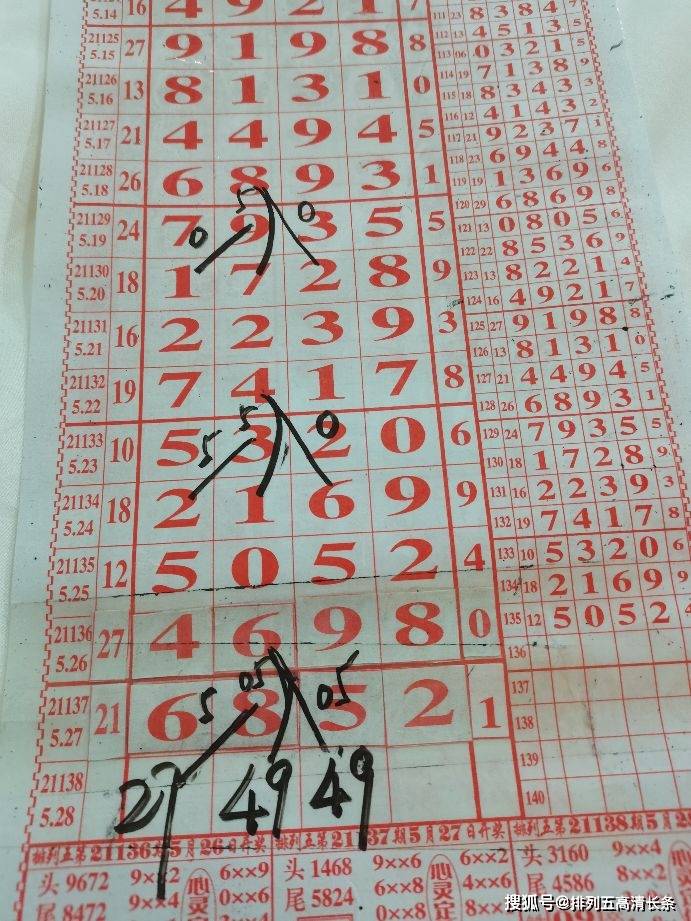 5.14 16 4 9 2 1 7
21125 5.15 27 9 1 9 8 8
21126 5.16 13 8 1 3 1 0
21127 5.17 21 4 4 9 4 5
21128 5.18 26 6 8 9 3 1
5 0
21129 5.19 24 7 9 3 5 5
0
21130 5.20 18 1 7 2 8 9
21131 5.21 16 2 2 3 9 3
21132 5.22 19 7 4 1 7 8
5 0
21133 5.23 10 5 3 2 0 6
5
21134 5.24 18 2 1 6 9 9
21135 5.25 12 5 0 5 2 4
21136 5.26 27 4 6 9 8 0
05 05
21137 5.27 21 6 8 5 2 1
5
21138 5.28 27 49 49
111 23 8 3 8 4 7
112 13 4 5 1 3 5
113 06 0 3 2 1 5
114 19 7 1 3 8 9
115 18 8 3 4 3 3
116 12 4 1 4 3 2
117 21 9 2 3 7 1
118 23 6 9 4 4 8
119 19 1 3 6 9 6
120 29 6 8 6 9 8
121 13 0 8 0 5 6
122 22 8 5 3 6 9
123 13 8 2 2 1 4
124 16 4 9 2 1 7
125 27 9 1 9 8 8
126 13 8 1 3 1 0
127 21 4 4 9 4 5
128 26 6 8 9 3 1
129 24 7 9 3 5 5
130 18 1 7 2 8 9
131 16 2 2 3 9 3
132 19 7 4 1 7 8
133 10 5 3 2 0 6
134 18 2 1 6 9 9
135 12 5 0 5 2 4
136
137
138
139
140
排列五第21136期5月26日开奖 排列五第21137期5月27日开奖 排列五第21138期5月28
头 9672 6××9 头 1468 9××6 6××2 头 3160 9××4
尾 8472 9××4 0××6 尾 5824 6××8 4××6 尾 4586 8××2
心灵 心灵
搜狐号@排列五高清长条